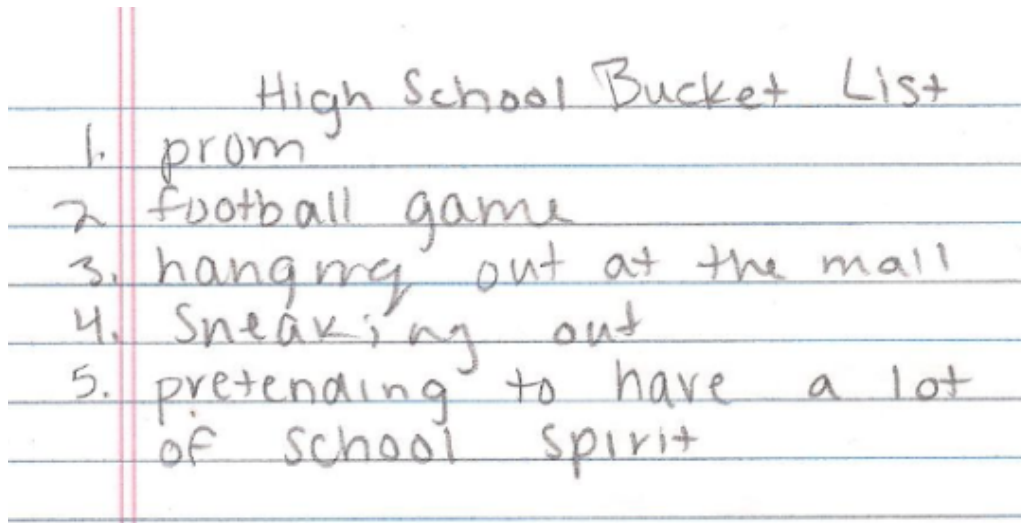 High School Bucket List
1. prom
2 football game
3. hanging out at the mall
4. Sneaking out
5. pretending to have a lot
of school spirit